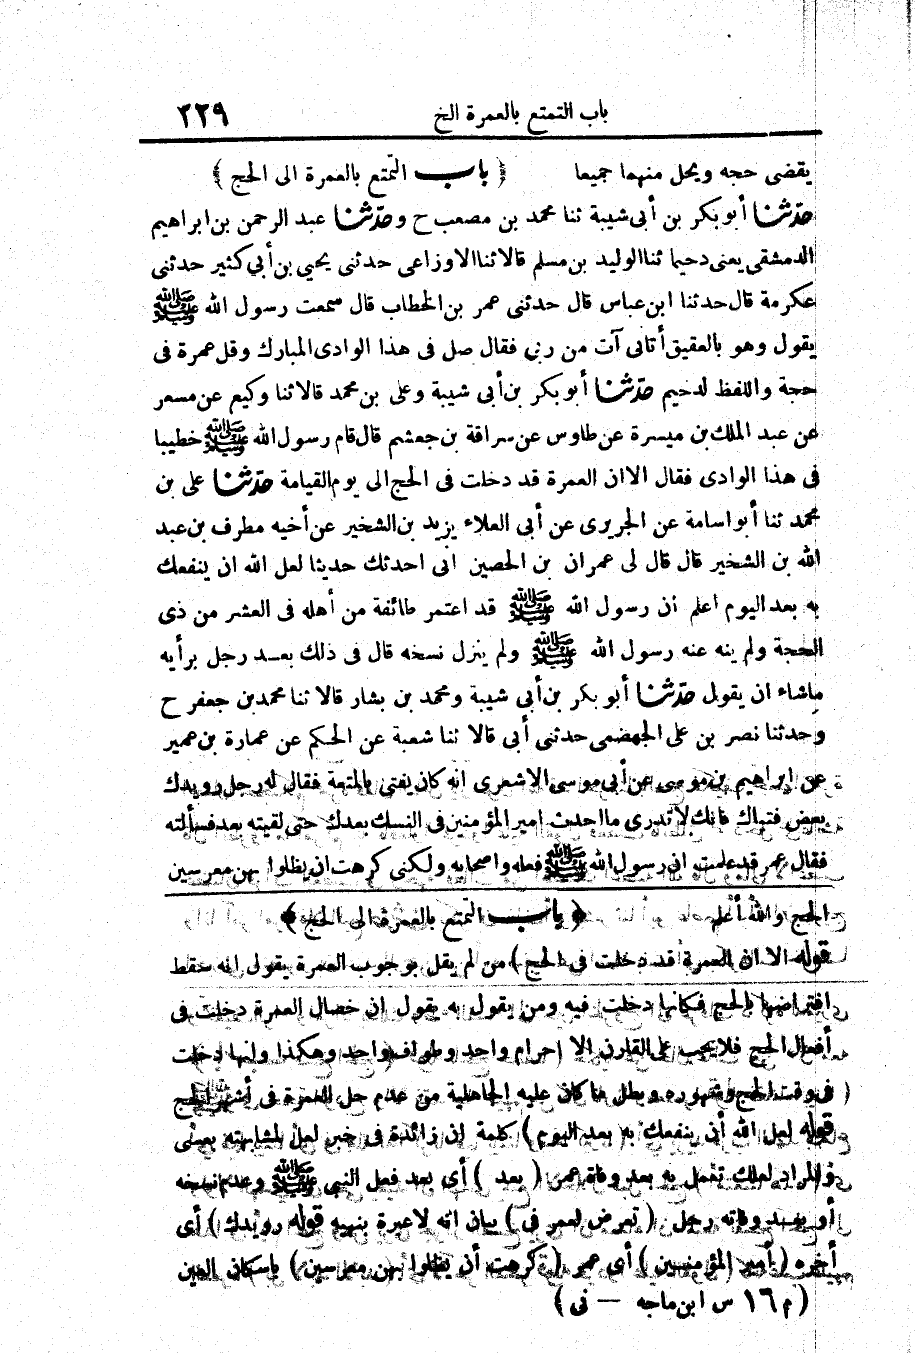 باب التمتع بالعمرة الخ ٢٢٩
يقضى حجه ويحل منهما جميعا ﴿ باب التمتع بالعمرة الى الحج ﴾
حدّثنا أبو بكر بن أبى شيبة ثنا محمد بن مصعب ح وحدّثنا عبد الرحمن بن ابراهيم
الدمشقى يعنى دحيما ثنا الوليد بن مسلم قالا ثنا الاوزاعى حدثنى يحيى بن أبى كثير حدثنى
عكرمة قال حدثنا ابن عباس قال حدثنى عمر بن الخطاب قال سمعت رسول الله ﷺ
يقول وهو بالعقيق أتانى آت من ربى فقال صل فى هذا الوادى المبارك وقل عمرة فى
حجة واللفظ لدحيم حدّثنا أبو بكر بن أبى شيبة وعلى بن محمد قالا ثنا وكيع عن مسعر
عن عبد الملك بن ميسرة عن طاوس عن سراقة بن جعشم قال قام رسول الله ﷺ خطيبا
فى هذا الوادى فقال الا ان العمرة قد دخلت فى الحج الى يوم القيامة حدّثنا على بن
محمد ثنا أبو اسامة عن الجريرى عن أبى العلاء يزيد بن الشخير عن أخيه مطرف بن عبد
الله بن الشخير قال قال لى عمران بن الحصين انى احدثك حديثا لعل الله ان ينفعك
به بعد اليوم اعلم ان رسول الله ﷺ قد اعتمر طائفة من أهله فى العشر من ذى
الحجة ولم ينه عنه رسول الله ﷺ ولم ينزل نسخه قال فى ذلك بعد رجل برأيه
ماشاء ان يقول حدّثنا أبو بكر بن أبى شيبة ومحمد بن بشار قالا ثنا محمد بن جعفر ح
وحدثنا نصر بن على الجهضمى حدثنى أبى قالا ثنا شعبة عن الحكم عن عمارة بن عمير
عن ابراهيم بن موسى عن أبى موسى الاشعرى انه كان يفتى بالمتعة فقال له رجل رويدك
بعض فتياك فانك لا تدرى ما احدث امير المؤمنين فى النسك بعدك حتى لقيته بعد فسألته
فقال عمر قد علمت ان رسول الله ﷺ فعله واصحابه ولكنى كرهت ان يظلوا بهن معرسين
الحج والله أعلم ﴿ باب التمتع بالعمرة الى الحج ﴾
قوله الا ان العمرة قد دخلت فى الحج ) من لم يقل بوجوب العمرة يقول انه سقط
افتراضها بالحج فكانها دخلت فيه ومن يقول به يقول ان خصال العمرة دخلت فى
أفعال الحج فلا يجب على القارن الا احرام واحد وطواف واحد وهكذا وانها دخلت
فى وقت الحج وشهوره وبطل ما كان عليه الجاهلية من عدم حل العمرة فى أشهر الحج
قوله لعل الله أن ينفعك به بعد اليوم ) كلمة ان زائدة فى خبر لعل لمشابهته بعسى
والمراد لعلك تعمل به بعد وفاة عمر ( بعد ) أى بعد فعل النبى ﷺ وعدم نسخه
أو بعد وفاته رجل ( تعرض لعمر فى ) بيان انه لا عبرة بنهيه قوله رويدك ) أى
أخره ( أمير المؤمنين ) أى عمر ( كرهت أن يظلوا بهن معرسين ) باسكان العين
( م ١٦ س ابن ماجه — نى )